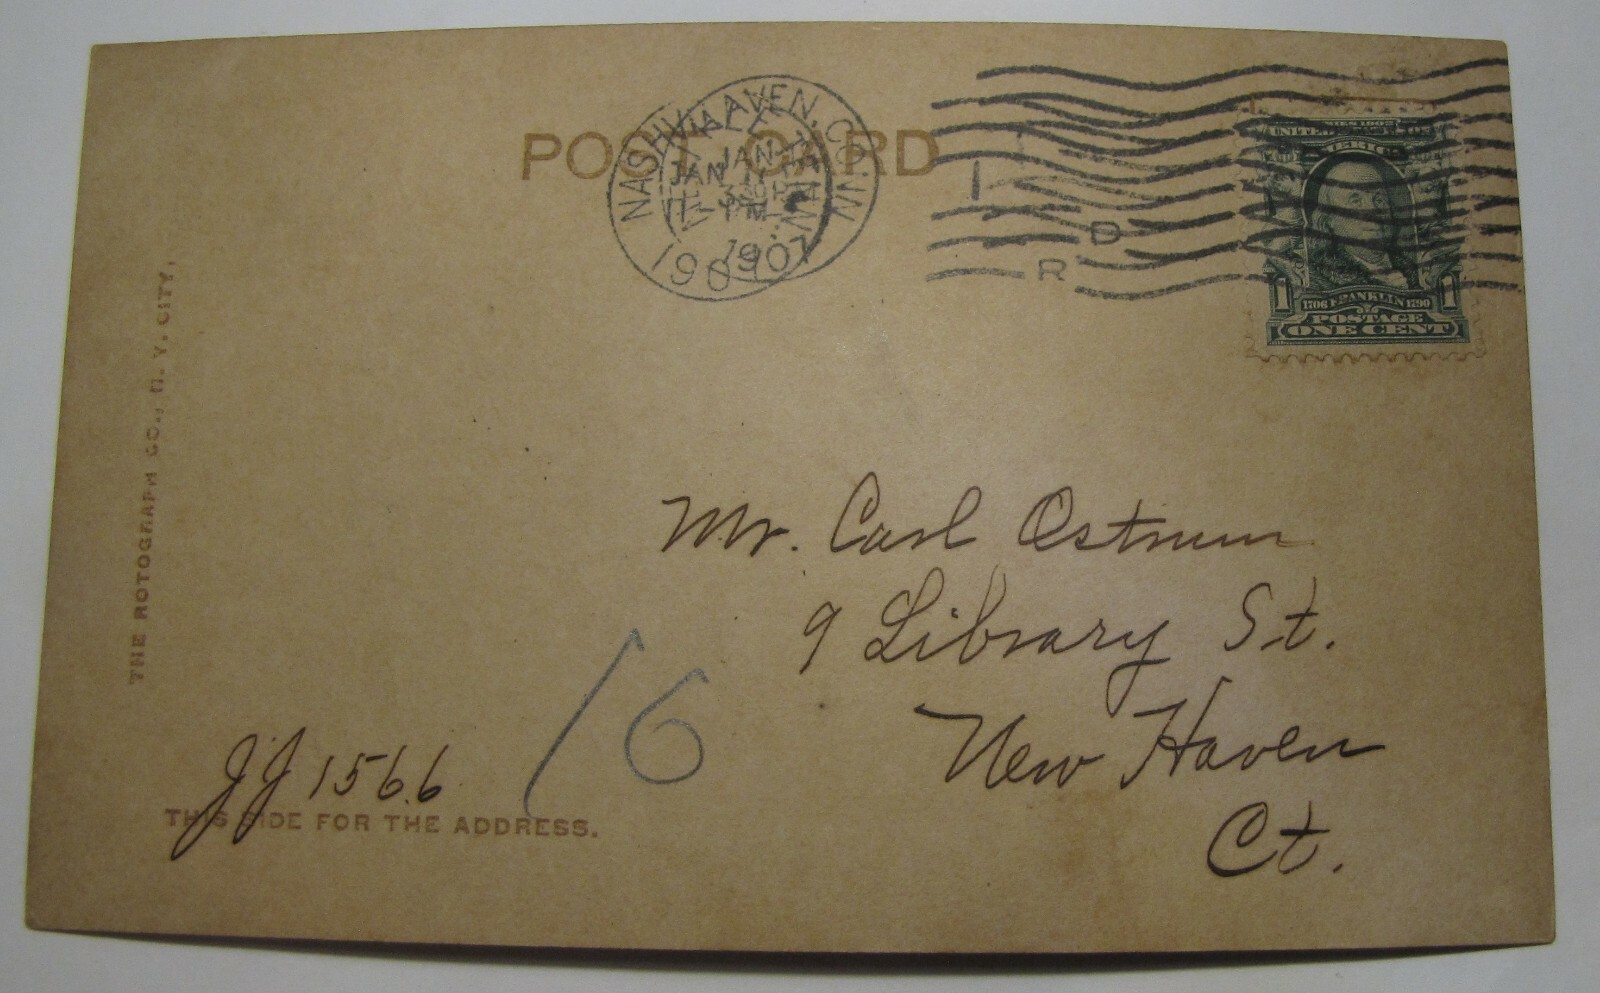 POST CARD
NASHVILLE, TENN.
NEW HAVEN, CONN.
JAN 11
JAN
1907
1907
D
R
SERIES 1902
UNITED STATES OF
AMERICA
1706 FRANKLIN 1790
1 1
POSTAGE
ONE CENT
THE ROTOGRAPH CO., N. Y. CITY.
Mr. Carl Ostrum
9 Library St.
New Haven
Ct.
16
JJ 156.6
THIS SIDE FOR THE ADDRESS.